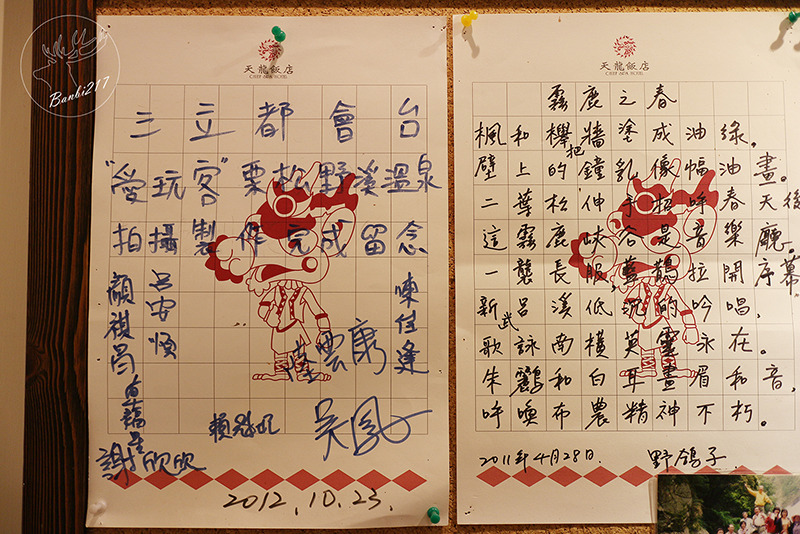 Banbi217
天龍飯店
CHIEF SPA HOTEL
三立都會台
"愛玩客"栗松野溪溫泉
拍攝製作完成留念
呂安順
顏祺昌
陳佳逢
雲康
吳鳳
謝欣欣
2012.10.23.
天龍飯店
CHIEF SPA HOTEL
霧鹿之春
楓和櫸把牆塗成油綠,
壁上的鐘乳像幅油畫。
二葉松伸手招呼春天後
這霧鹿峽谷是音樂廳。
一襲長服,藍鵲拉開序幕
新武呂溪低沉的吟唱,
歌詠南橫英靈永在。
朱鸝和白耳畫眉和音,
呼喚布農精神不朽。
2011年4月28日. 野鴿子